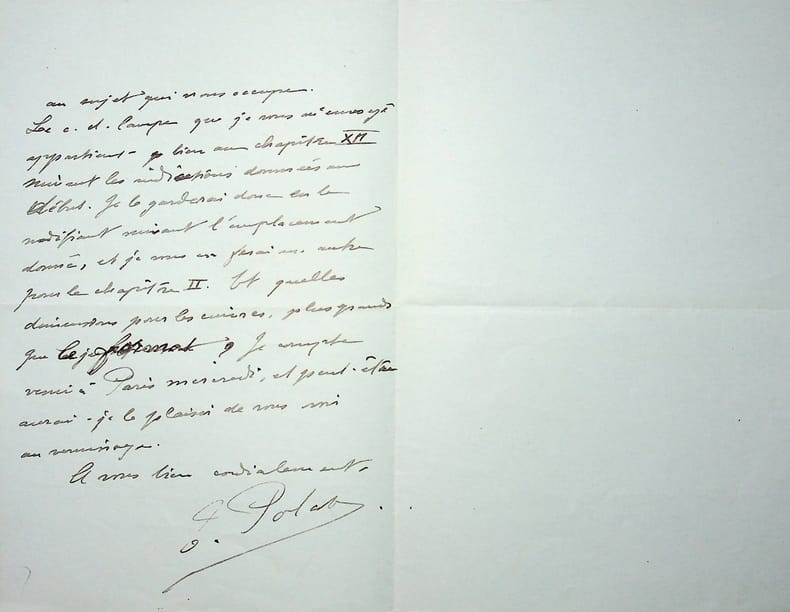 au sujet qui nous occupe.
Le c. d. lampe que je vous ai envoyé
appartient bien au chapitre XII
suivant les indications données au
début. Je le garderai donc en le
modifiant suivant l'emplacement
donné, et je vous en ferai un autre
pour le chapitre II. Et quelles
dimensions pour les cuivres, plus grands
que le format ? Je compte
venir à Paris mercredi, et peut-être
aurai-je le plaisir de vous voir
au vernissage.
A vous bien cordialement,
Polat